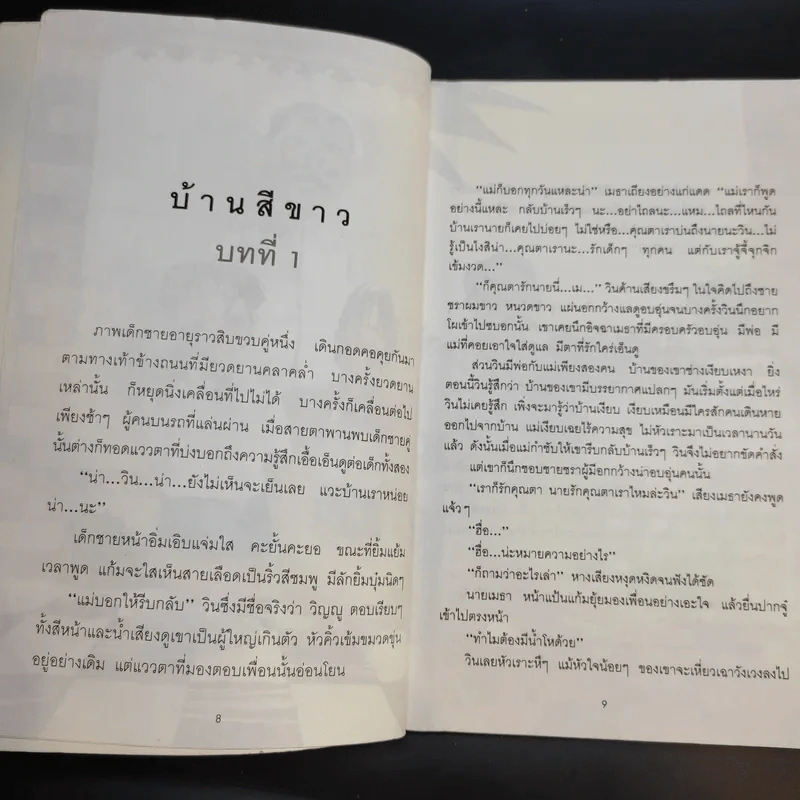 บ้านสีขาว
บทที่ 1
ภาพเด็กชายอายุราวสิบขวบคู่หนึ่ง เดินกอดคอคุยกันมา
ตามทางเท้าข้างถนนที่มียวดยานคลาคล่ำ บางครั้งยวดยาน
เหล่านั้น ก็หยุดนิ่งเคลื่อนที่ไปไม่ได้ บางครั้งก็เคลื่อนต่อไป
เพียงช้าๆ ผู้คนบนรถที่แล่นผ่าน เมื่อสายตาพานพบเด็กชายคู่
นั้นต่างก็ทอดแววตาที่บ่งบอกถึงความรู้สึกเอื้อเอ็นดูต่อเด็กทั้งสอง
“น่า...วิน...น่า...ยังไม่เห็นจะเย็นเลย แวะบ้านเราหน่อย
น่า...นะ”
เด็กชายหน้าอิ่มเอิบแจ่มใส คะยั้นคะยอ ขณะที่ยิ้มแย้ม
เวลาพูด แก้มจะใสเห็นสายเลือดเป็นริ้วสีชมพู มีลักยิ้มบุ๋มนิดๆ
“แม่บอกให้รีบกลับ” วินซึ่งมีชื่อจริงว่า วิญญู ตอบเรียบๆ
ทั้งสีหน้าและน้ำเสียงดูเขาเป็นผู้ใหญ่เกินตัว หัวคิ้วเข้มขมวดขุ่น
อยู่อย่างเดิม แต่แววตาที่มองตอบเพื่อนนั้นอ่อนโยน
8
“แม่ก็บอกทุกวันแหละน่า” เมธาเถียงอย่างแก่แดด “แม่เราก็พูด
อย่างนี้แหละ กลับบ้านเร็วๆ นะ...อย่าไถลนะ...แหม...ไถลที่ไหนกัน
บ้านเรานายก็เคยไปบ่อยๆ ไม่ใช่หรือ...คุณตาเราบ่นถึงนายนะวิน...ไม่
รู้เป็นไงสิน่า...คุณตาเรานะ...รักเด็กๆ ทุกคน แต่กับเราจู้จี้จุกจิก
เข้มงวด...”
“ก็คุณตารักนายนี่...เม...” วินค้านเสียงขรึมๆ ในใจคิดไปถึงชาย
ชราผมขาว หนวดขาว แผ่นอกกว้างแลดูอบอุ่นจนบางครั้งวินนึกอยาก
โผเข้าไปซบอกนั้น เขาเคยนึกอิจฉาเมธาที่มีครอบครัวอบอุ่น มีพ่อ มี
แม่ที่คอยเอาใจใส่ดูแล มีตาที่รักใคร่เอ็นดู
ส่วนวินมีพ่อกับแม่เพียงสองคน บ้านของเขาช่างเงียบเหงา ยิ่ง
ตอนนี้วินรู้สึกว่า บ้านของเขามีบรรยากาศแปลกๆ มันเริ่มตั้งแต่เมื่อไหร่
วินไม่เคยรู้สึก เพิ่งจะมารู้ว่าบ้านเงียบ เงียบเหมือนมีใครสักคนเดินหาย
ออกไปจากบ้าน แม่เงียบเฉยไร้ความสุข ไม่หัวเราะมาเป็นเวลานานวัน
แล้ว ดังนั้นเมื่อแม่กำชับให้เขารีบกลับบ้านเร็วๆ วินจึงไม่อยากขัดคำสั่ง
แต่เขาก็นึกชอบชายชราผู้มีอกกว้างน่าอบอุ่นคนนั้น
“เราก็รักคุณตา นายรักคุณตาเราไหมล่ะวิน” เสียงเมธายังคงพูด
แจ้วๆ
“ฮื่อ...”
“ฮื่อ...น่ะหมายความอย่างไร”
“ก็ถามว่าอะไรเล่า” หางเสียงหงุดหงิดจนฟังได้ชัด
นายเมธา หน้าแป้นแก้มยุ้ยมองเพื่อนอย่างเอะใจ แล้วยื่นปากจู๋
เข้าไปตรงหน้า
“ทำไมต้องมีน้ำโหด้วย”
วินเลยหัวเราะหึๆ แม้หัวใจน้อยๆ ของเขาจะเหี่ยวเฉาวังเวงลงไป
9